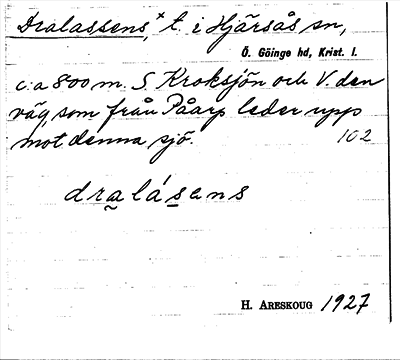 Dralassens,ˣ t. i Hjärsås sn,
Ö. Göinge hd, Krist. l.
c:a 800 m. S. Kroksjön och V. den
väg som från Påarp leder upp
mot denna sjö. 102
dralásens
H. ARESKOUG 1927